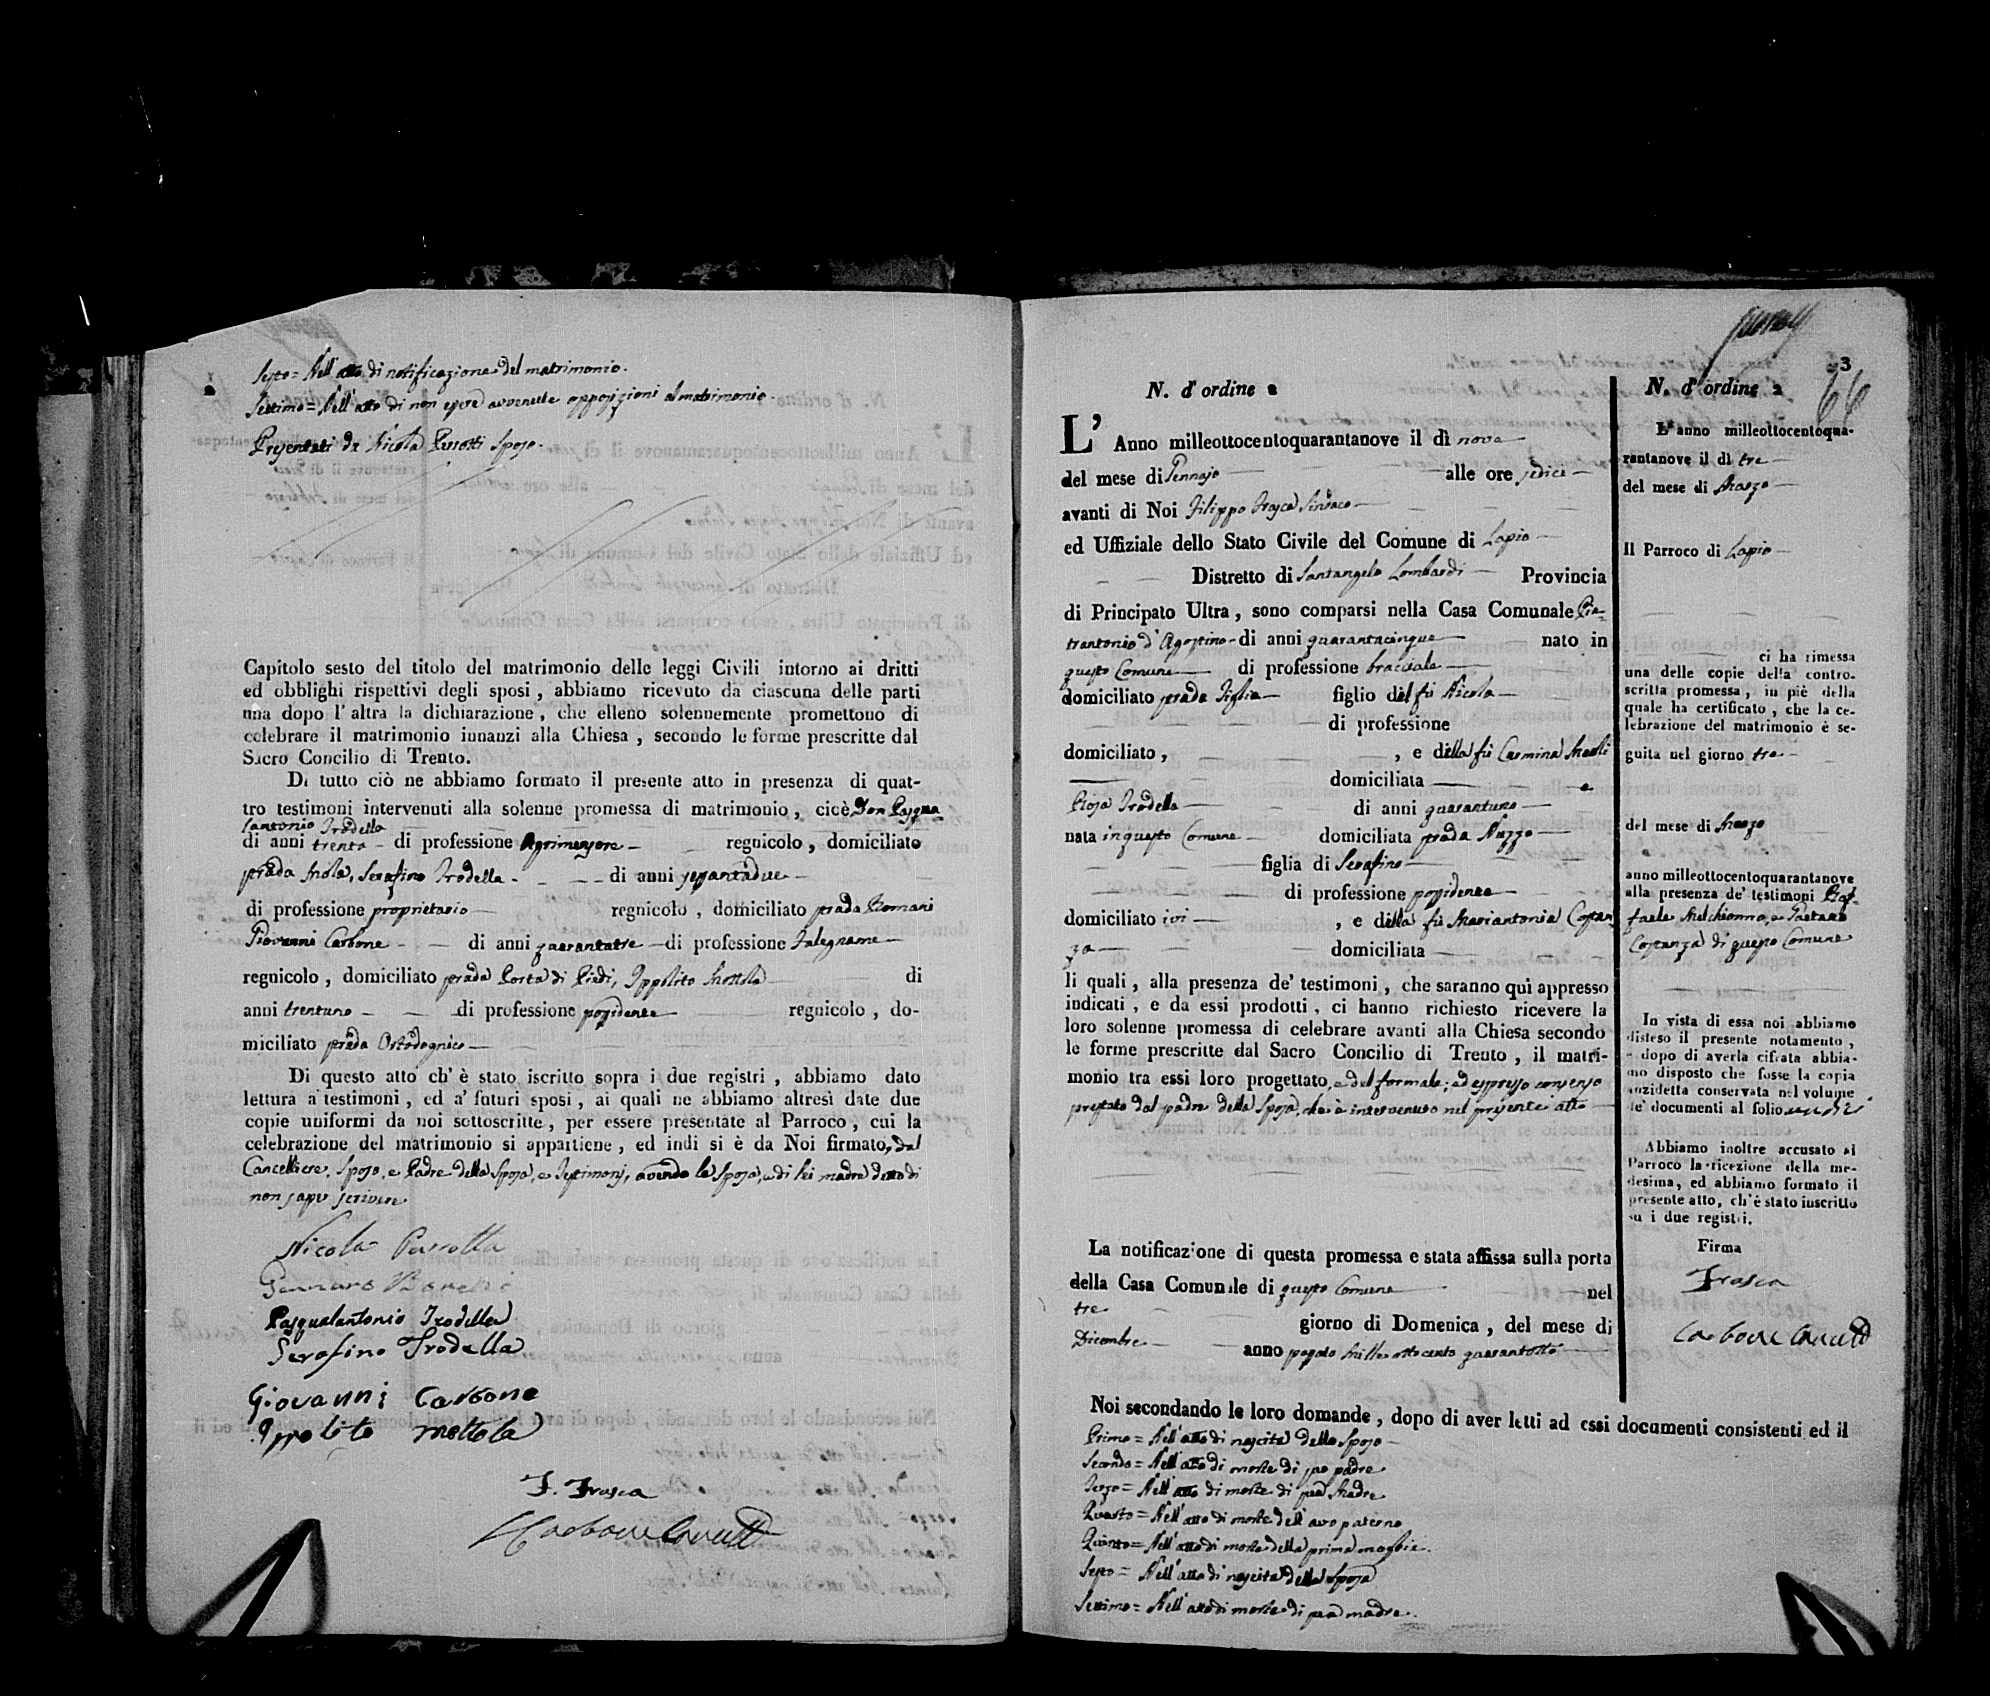 Sesto = Nell'atto di notificazione del matrimonio.
Settimo = Nell'atto di non essere avvenute opposizioni al matrimonio.
Presentati da Nicola Perrotti Sposo.
Capitolo sesto del titolo del matrimonio delle leggi Civili intorno ai dritti
ed obblighi rispettivi degli sposi, abbiamo ricevuto da ciascuna delle parti
una dopo l'altra la dichiarazione, che elleno solennemente promettono di
celebrare il matrimonio innanzi alla Chiesa, secondo le forme prescritte dal
Sacro Concilio di Trento.
Di tutto ciò ne abbiamo formato il presente atto in presenza di quat-
tro testimoni intervenuti alla solenne promessa di matrimonio, cioè Don Pasqua
lantonio Trodella
di anni trenta di professione Agrimensore regnicolo, domiciliato
strada Mola, Serafino Trodella di anni sessantadue
di professione proprietario regnicolo, domiciliato strada Romani
Giovanni Carbone di anni quarantatre di professione Falegname
regnicolo, domiciliato strada Porta di Piedi, Ippolito Mottola di
anni trentuno di professione possidente regnicolo, do-
miciliato strada
Di questo atto ch'è stato iscritto sopra i due registri, abbiamo dato
lettura a' testimoni, ed a' futuri sposi, ai quali ne abbiamo altresì date due
copie uniformi da noi sottoscritte, per essere presentate al Parroco, cui la
celebrazione del matrimonio si appartiene, ed indi si è da Noi firmato, dal
Cancelliere, Sposo, e Padre della Sposa, e Testimonj, avendo la Sposa, e di lei madre detto di
non saper scrivere
Nicola Perrotta
Gennaro
Pasqualantonio Trodella
Serafino Trodella
Giovanni Carbone
Ippolito Mottola
F. Frasca
Carbone
3
66
N. d'ordine 2
L'Anno milleottocentoquarantanove il dì nove
del mese di Gennajo alle ore sedici
avanti di Noi Filippo Frasca Sindaco
ed Uffiziale dello Stato Civile del Comune di Lapio
Distretto di Santangelo Lombardi Provincia
di Principato Ultra, sono comparsi nella Casa Comunale Pie-
trantonio d'Agostino di anni quarantacinque nato in
questo Comune di professione bracciale
domiciliato strada figlio del fù Nicola
di professione
domiciliato, , e della fù Carmina
domiciliata e
Rosa Trodella di anni quarantuno
nata in questo Comune domiciliata strada
figlia di Serafino
di professione possidente
domiciliato ivi , e della fù Mariantonia Costan
za domiciliata
li quali, alla presenza de' testimoni, che saranno quì appresso
indicati, e da essi prodotti, ci hanno richiesto ricevere la
loro solenne promessa di celebrare avanti alla Chiesa secondo
le forme prescritte dal Sacro Concilio di Trento, il matri-
monio tra essi loro progettato, e del formale, ed espresso consenso
prestato dal padre della Sposa, che è intervenuto nel presente atto
La notificazione di questa promessa e stata affissa sulla porta
della Casa Comunale di questo Comune nel
tre
giorno di Domenica, del mese di
Dicembre anno passato Mille ottocento quarantotto
Noi secondando le loro domande, dopo di aver letti ad essi documenti consistenti ed il
Primo = Nell'atto di nascita dello Sposo
Secondo = Nell'atto di morte di suo padre
Terzo = Nell'atto di morte di sua Madre
Quarto = Nell'atto di morte dell'avo paterno
Quinto = Nell'atto di morte della prima moglie.
Sesto = Nell'atto di nascita della Sposa
Settimo = Nell'atto di morte di sua madre.
N. d'ordine 2
L'anno milleottocentoqua-
rantanove il dì tre
del mese di Marzo
Il Parroco di Lapio
ci ha rimessa
una delle copie della contro-
scritta promessa, in piè della
quale ha certificato, che la ce-
lebrazione del matrimonio è se-
guita nel giorno tre
del mese di Marzo
anno milleottocentoquarantanove
alla presenza de' testimoni Raf-
faele Melchionno, e Gaetano
Costanza di questo Comune
In vista di essa noi abbiamo
disteso il presente notamento,
e dopo di averla cifrata abbia-
mo disposto che fosse la copia
anzidetta conservata nel volume
de' documenti al folio
Abbiamo inoltre accusato al
Parroco la ricezione della me-
desima, ed abbiamo formato il
presente atto, ch'è stato inscritto
su i due registri.
Firma
Frasca
Carbone